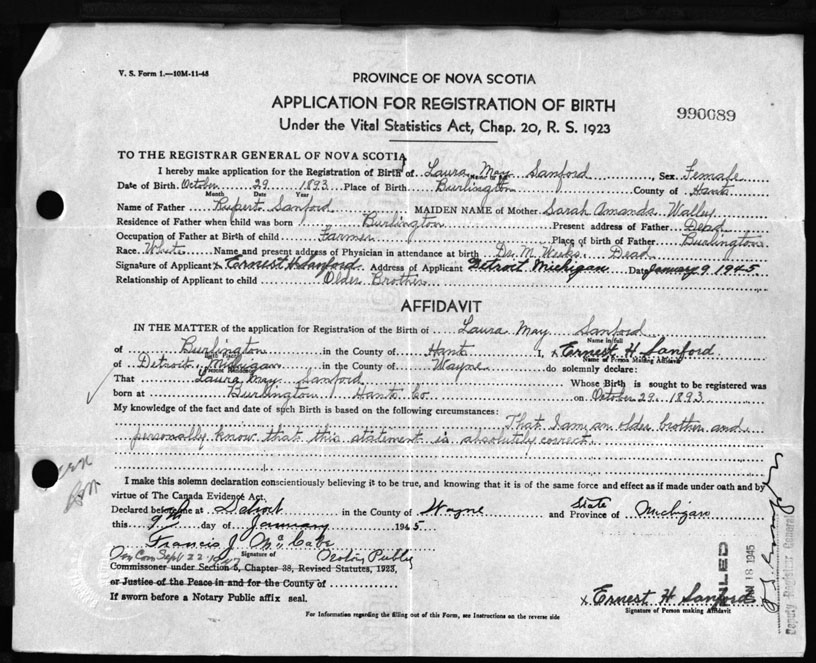 V. S. Form 1.—10M-11-43
PROVINCE OF NOVA SCOTIA
APPLICATION FOR REGISTRATION OF BIRTH
990089
Under the Vital Statistics Act, Chap. 20, R. S. 1923
TO THE REGISTRAR GENERAL OF NOVA SCOTIA
I hereby make application for the Registration of Birth of Laura May Sanford, Sex Female
Date of Birth October 29 1893 Place of Birth Burlington County of Hants
Month Date Year
Name of Father Rupert Sanford MAIDEN NAME of Mother Sarah Amanda Walley
Residence of Father when child was born Burlington Present address of Father Dead
Occupation of Father at Birth of child Farmer Place of birth of Father Burlington
Race White Name and present address of Physician in attendance at birth Dr. M. Weeks. Dead
Signature of Applicant x Ernest H Sanford Address of Applicant Detroit Michigan Date January 9 1945
Relationship of Applicant to child Older Brother
AFFIDAVIT
IN THE MATTER of the application for Registration of the Birth of Laura May Sanford
Name in full
of Burlington in the County of Hants I, x Ernest H Sanford
Birth Place Name of Person Making Affidavit
of Detroit Michigan in the County of Wayne do solemnly declare:
Present Residence
That Laura May Sanford Whose Birth is sought to be registered was
born at Burlington Hants Co on October 29 1893
My knowledge of the fact and date of such Birth is based on the following circumstances: That I am an older brother and
personally know that this statement is absolutely correct.
I make this solemn declaration conscientiously believing it to be true, and knowing that it is of the same force and effect as if made under oath and by
virtue of The Canada Evidence Act.
Declared before me at Detroit in the County of Wayne and State Province of Michigan
this 9th day of January 1945
Francis J. McCabe
Signature of Notary Public
Commissioner under Section 5, Chapter 38, Revised Statutes, 1923,
or Justice of the Peace in and for the County of
If sworn before a Notary Public affix seal.
x Ernest H Sanford
Signature of Person making Affidavit
For Information regarding the filling out of this Form, see Instructions on the reverse side
FILED
JAN 18 1945
Deputy Registrar General